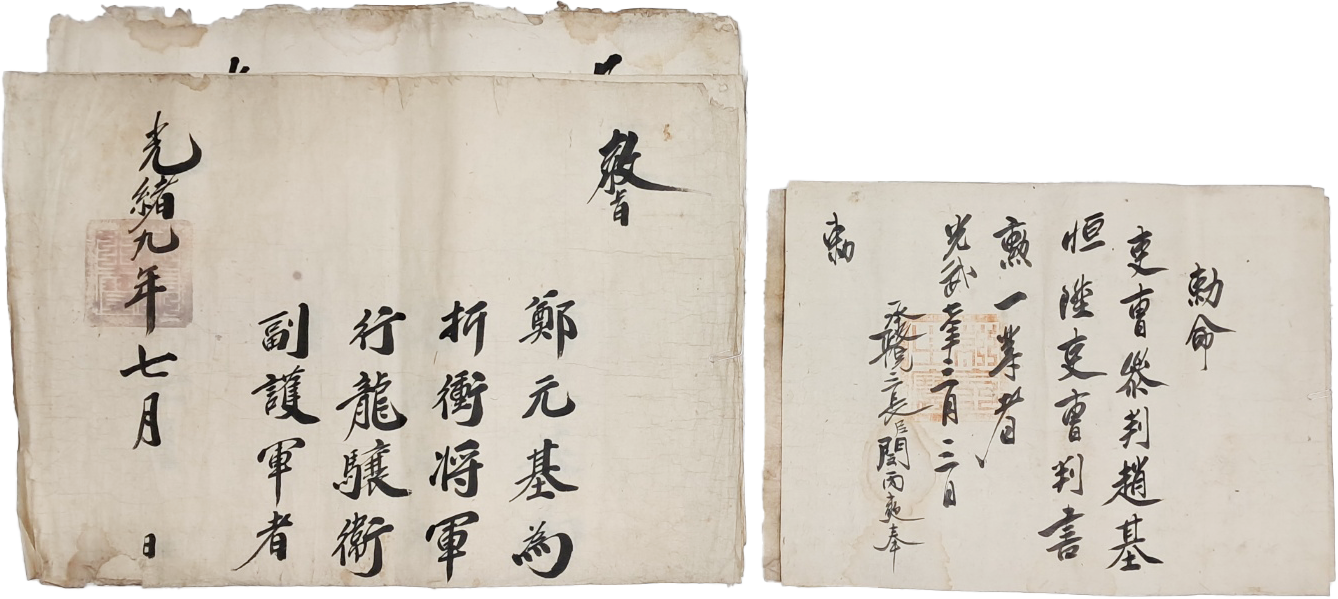 敎旨
鄭元基為
折衝将軍
行龍驤衛
副護軍者
光緒九年七月 日
勅命
吏曹參判趙基
恒陞吏曹判書
勲一者
光武年月三日
長臣閔丙奭奉
勅